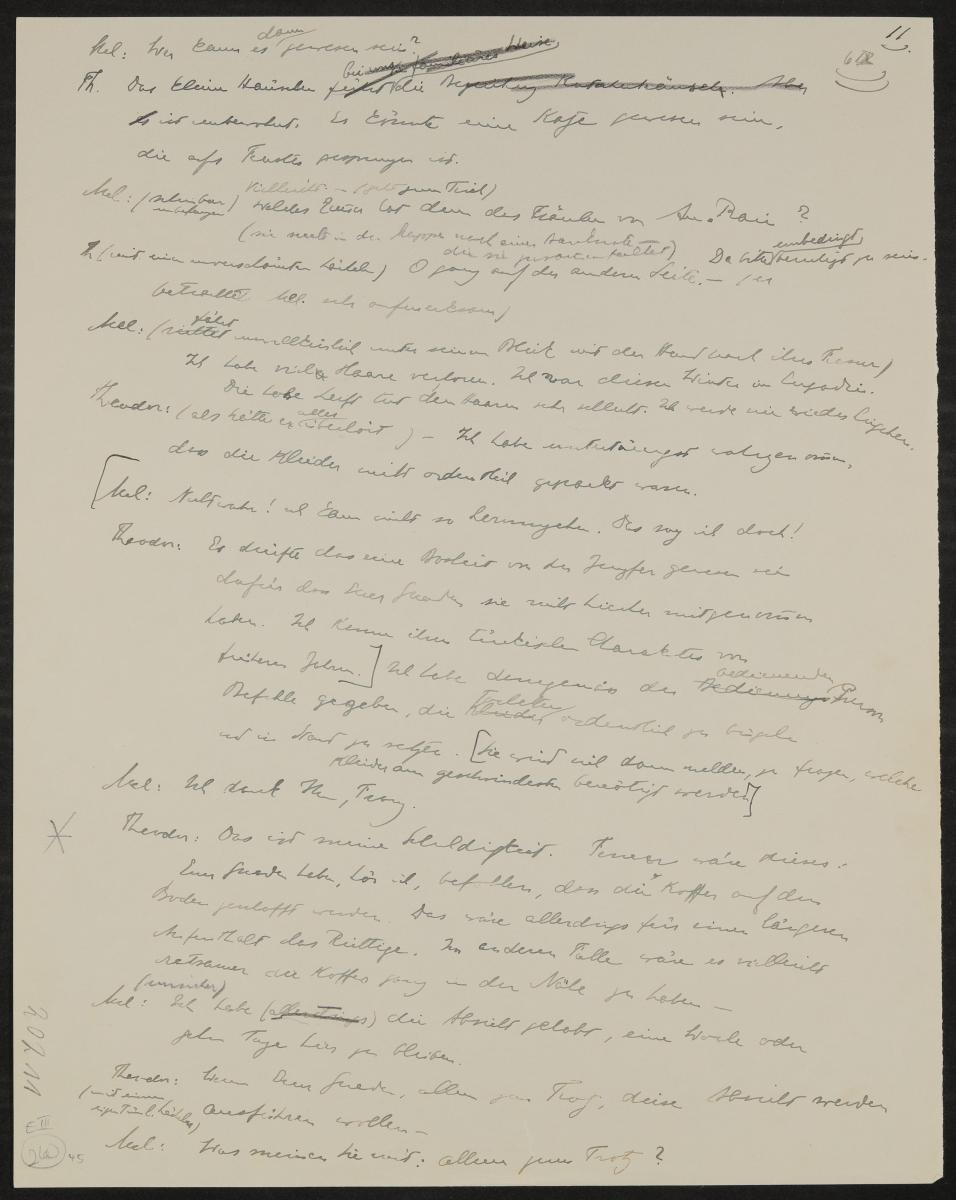 11
Mel: Wer kann es dann gewesen sein?
Th. Das kleine Häuschen führt die
Es ist unbewohnt. Es könnte eine Katze gewesen sein,
die aufs Fenster gesprungen ist.
vielleicht – (geht zum Tisch)
Mel: (scheinbar unbefangen) welches Zimmer hat denn das Fräulein von Am Rain?
(sie sucht in der Mappe nach einer Banknote –
die sie zusammenfaltet)
Th (mit einem unverschämten Lächeln) O ganz auf der anderen Seite. – Da bitte unbedingt beruhigt zu sein. – (er
betrachtet Mel. sehr aufmerksam)
Mel: (fährt unwillkürlich unter seinem Blick mit der Hand nach ihrer Frisur)
Ich habe viele Haare verloren. Ich war diesen Winter im Engadin.
Die hohe Luft tut den Haaren sehr schlecht. Ich werde nie wieder hingehen.
Theodor: (als hätte er alles überhört) – Ich habe untertänigst wahrgenommen,
dass die Kleider nicht ordentlich gepackt waren.
[Mel: Nicht wahr! ich kann nicht so herumgehen. Das sag ich doch!
Theodor: Es dürfte das eine Bosheit von der Jungfer gewesen sein
dafür dass Euer Gnaden sie nicht hierher mitgenommen
haben. Ich kenne ihren tückischen Charakter von
früheren Jahren.] Ich habe demgemäss der bedienenden Person
Befehle gegeben, die Toiletten ordentlich zu bügeln
und in Stand zu setzen. [Sie wird sich dann melden, zu fragen, welche
Kleider am geschwindesten benötigt werden]
Mel: Ich dank Ihnen, Franz.
Theodor: Das ist meine Schuldigkeit. Ferner wäre dieses:
Euer Gnaden haben, hör ich, befohlen, dass die Koffer auf den
Boden geschafft werden. Das wäre allerdings für einen längeren
Aufenthalt das Richtige. Im anderen Falle wäre es vielleicht
ratsamer die Koffer ganz in der Nähe zu haben –
(unsicher)
Mel: Ich habe (allerdings) die Absicht gehabt, eine Woche oder
zehn Tage hier zu bleiben.
Theodor: Wenn Euer Gnaden, allem zum Trotz, diese Absicht werden
(mit einem eigentüml. Lächeln) ausführen wollen –
Mel: Was meinen Sie mit: allem zum Trotz?
E III
45